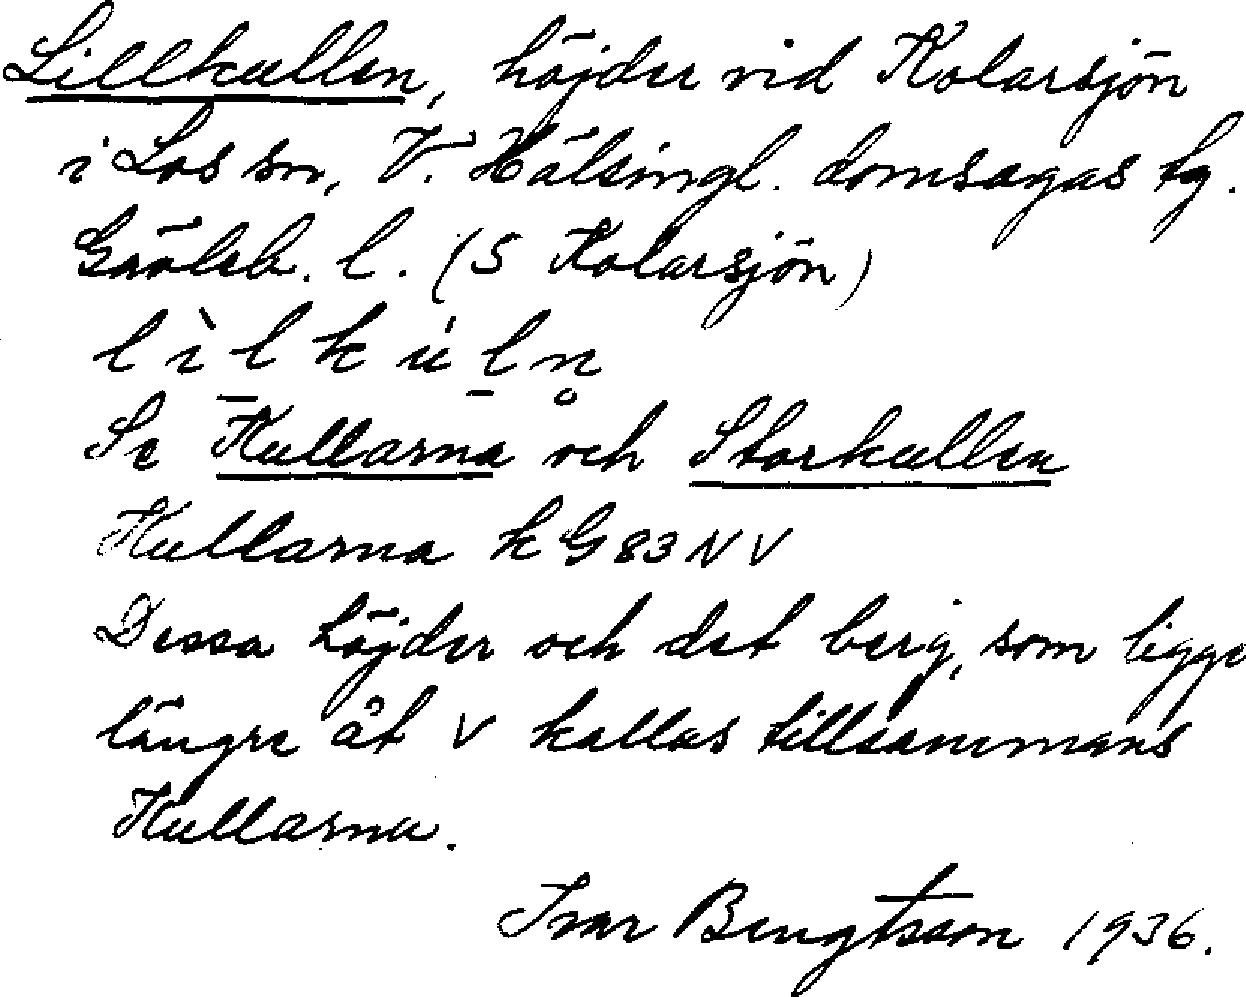 Lillkullen, höjder vid Kolarsjön
i Los sn, V. Hälsingl. domsagas tg.
Gävleb. l. (S Kolarsjön)
l ì l k ú l̠ n̥
Se Kullarna och Storkullen
Kullarna k G 83 NV
Dessa höjder och det berg, som ligge
längre åt V kallas tillsammans
Kullarna.
Ivar Bengtsson 1936.